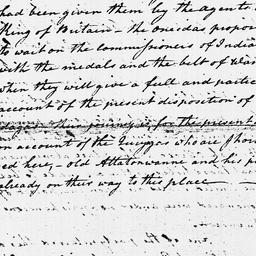 had been given them by the agents
King of Britain – the oneidas propo
to wait on the commissioners of India
with the medals and the belt of Wa
when they will give a full and partic
account of the present disposition of
their journey is, for the present
on account of the who are
ed here, – old Attatonwanne and his p
already on their way to this place